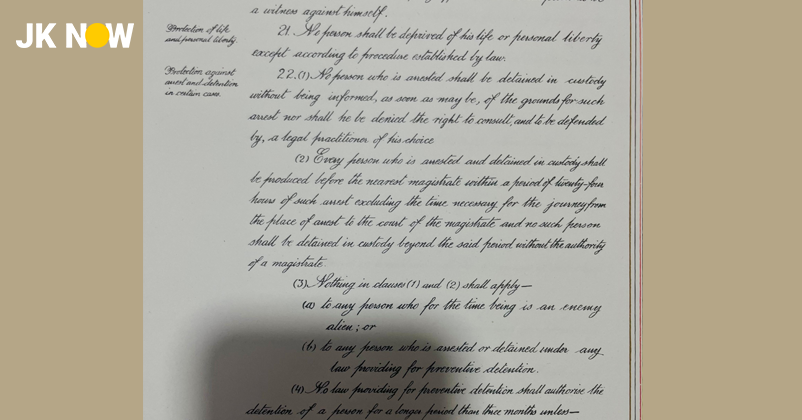 JK NOW
a witness against himself.
Protection of life
and personal liberty.
21. No person shall be deprived of his life or personal liberty
except according to procedure established by law.
Protection against
arrest and detention
in certain cases.
22.(1) No person who is arrested shall be detained in custody
without being informed, as soon as may be, of the grounds for such
arrest nor shall he be denied the right to consult, and to be defended
by, a legal practitioner of his choice
(2) Every person who is arrested and detained in custody shall
be produced before the nearest magistrate within a period of twenty-four
hours of such arrest excluding the time necessary for the journey from
the place of arrest to the court of the magistrate and no such person
shall be detained in custody beyond the said period without the authority
of a magistrate.
(3) Nothing in clauses (1) and (2) shall apply—
(a) to any person who for the time being is an enemy
alien; or
(b) to any person who is arrested or detained under any
law providing for preventive detention.
(4) No law providing for preventive detention shall authorise the
detention of a person for a longer period than three months unless—